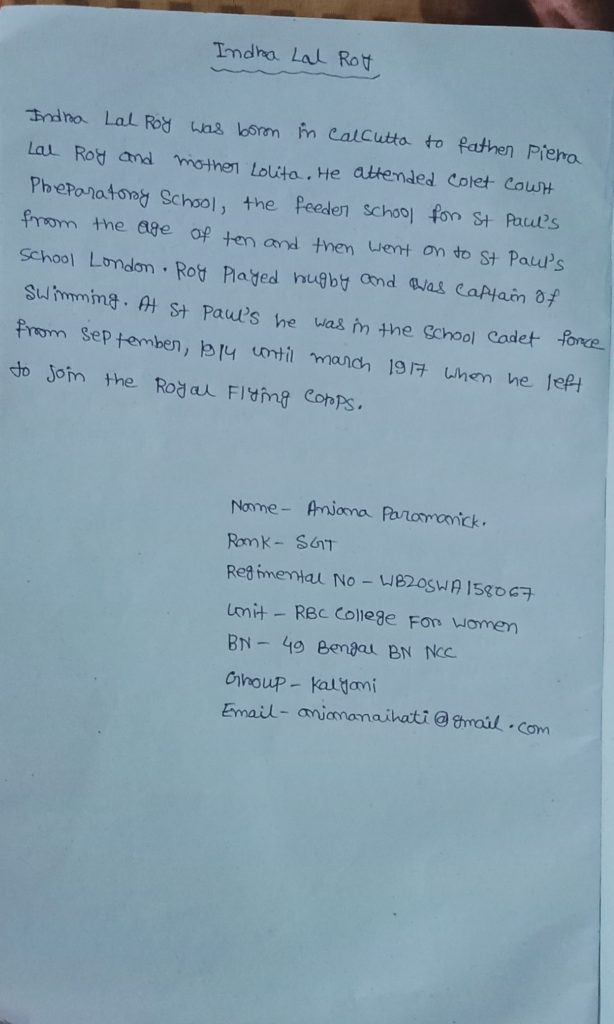 Indra Lal Roy
Indra Lal Roy was born in Calcutta to father Piera
Lal Roy and mother Lolita. He attended Colet Court
Preparatory School, the feeder school for St Paul's
from the age of ten and then went on to St Paul's
School London. Roy Played rugby and was Captain of
Swimming. At St Paul's he was in the School Cadet force
from September, 1914 until march 1917 when he left
to join the Royal Flying Corps.
Name - Anjana Paramanick.
Rank - SGT
Regimental No - WB20SWA158067
Unit - RBC College For Women
BN - 49 Bengal BN NCC
Group - Kalyani
Email - anjananaihati@gmail.com